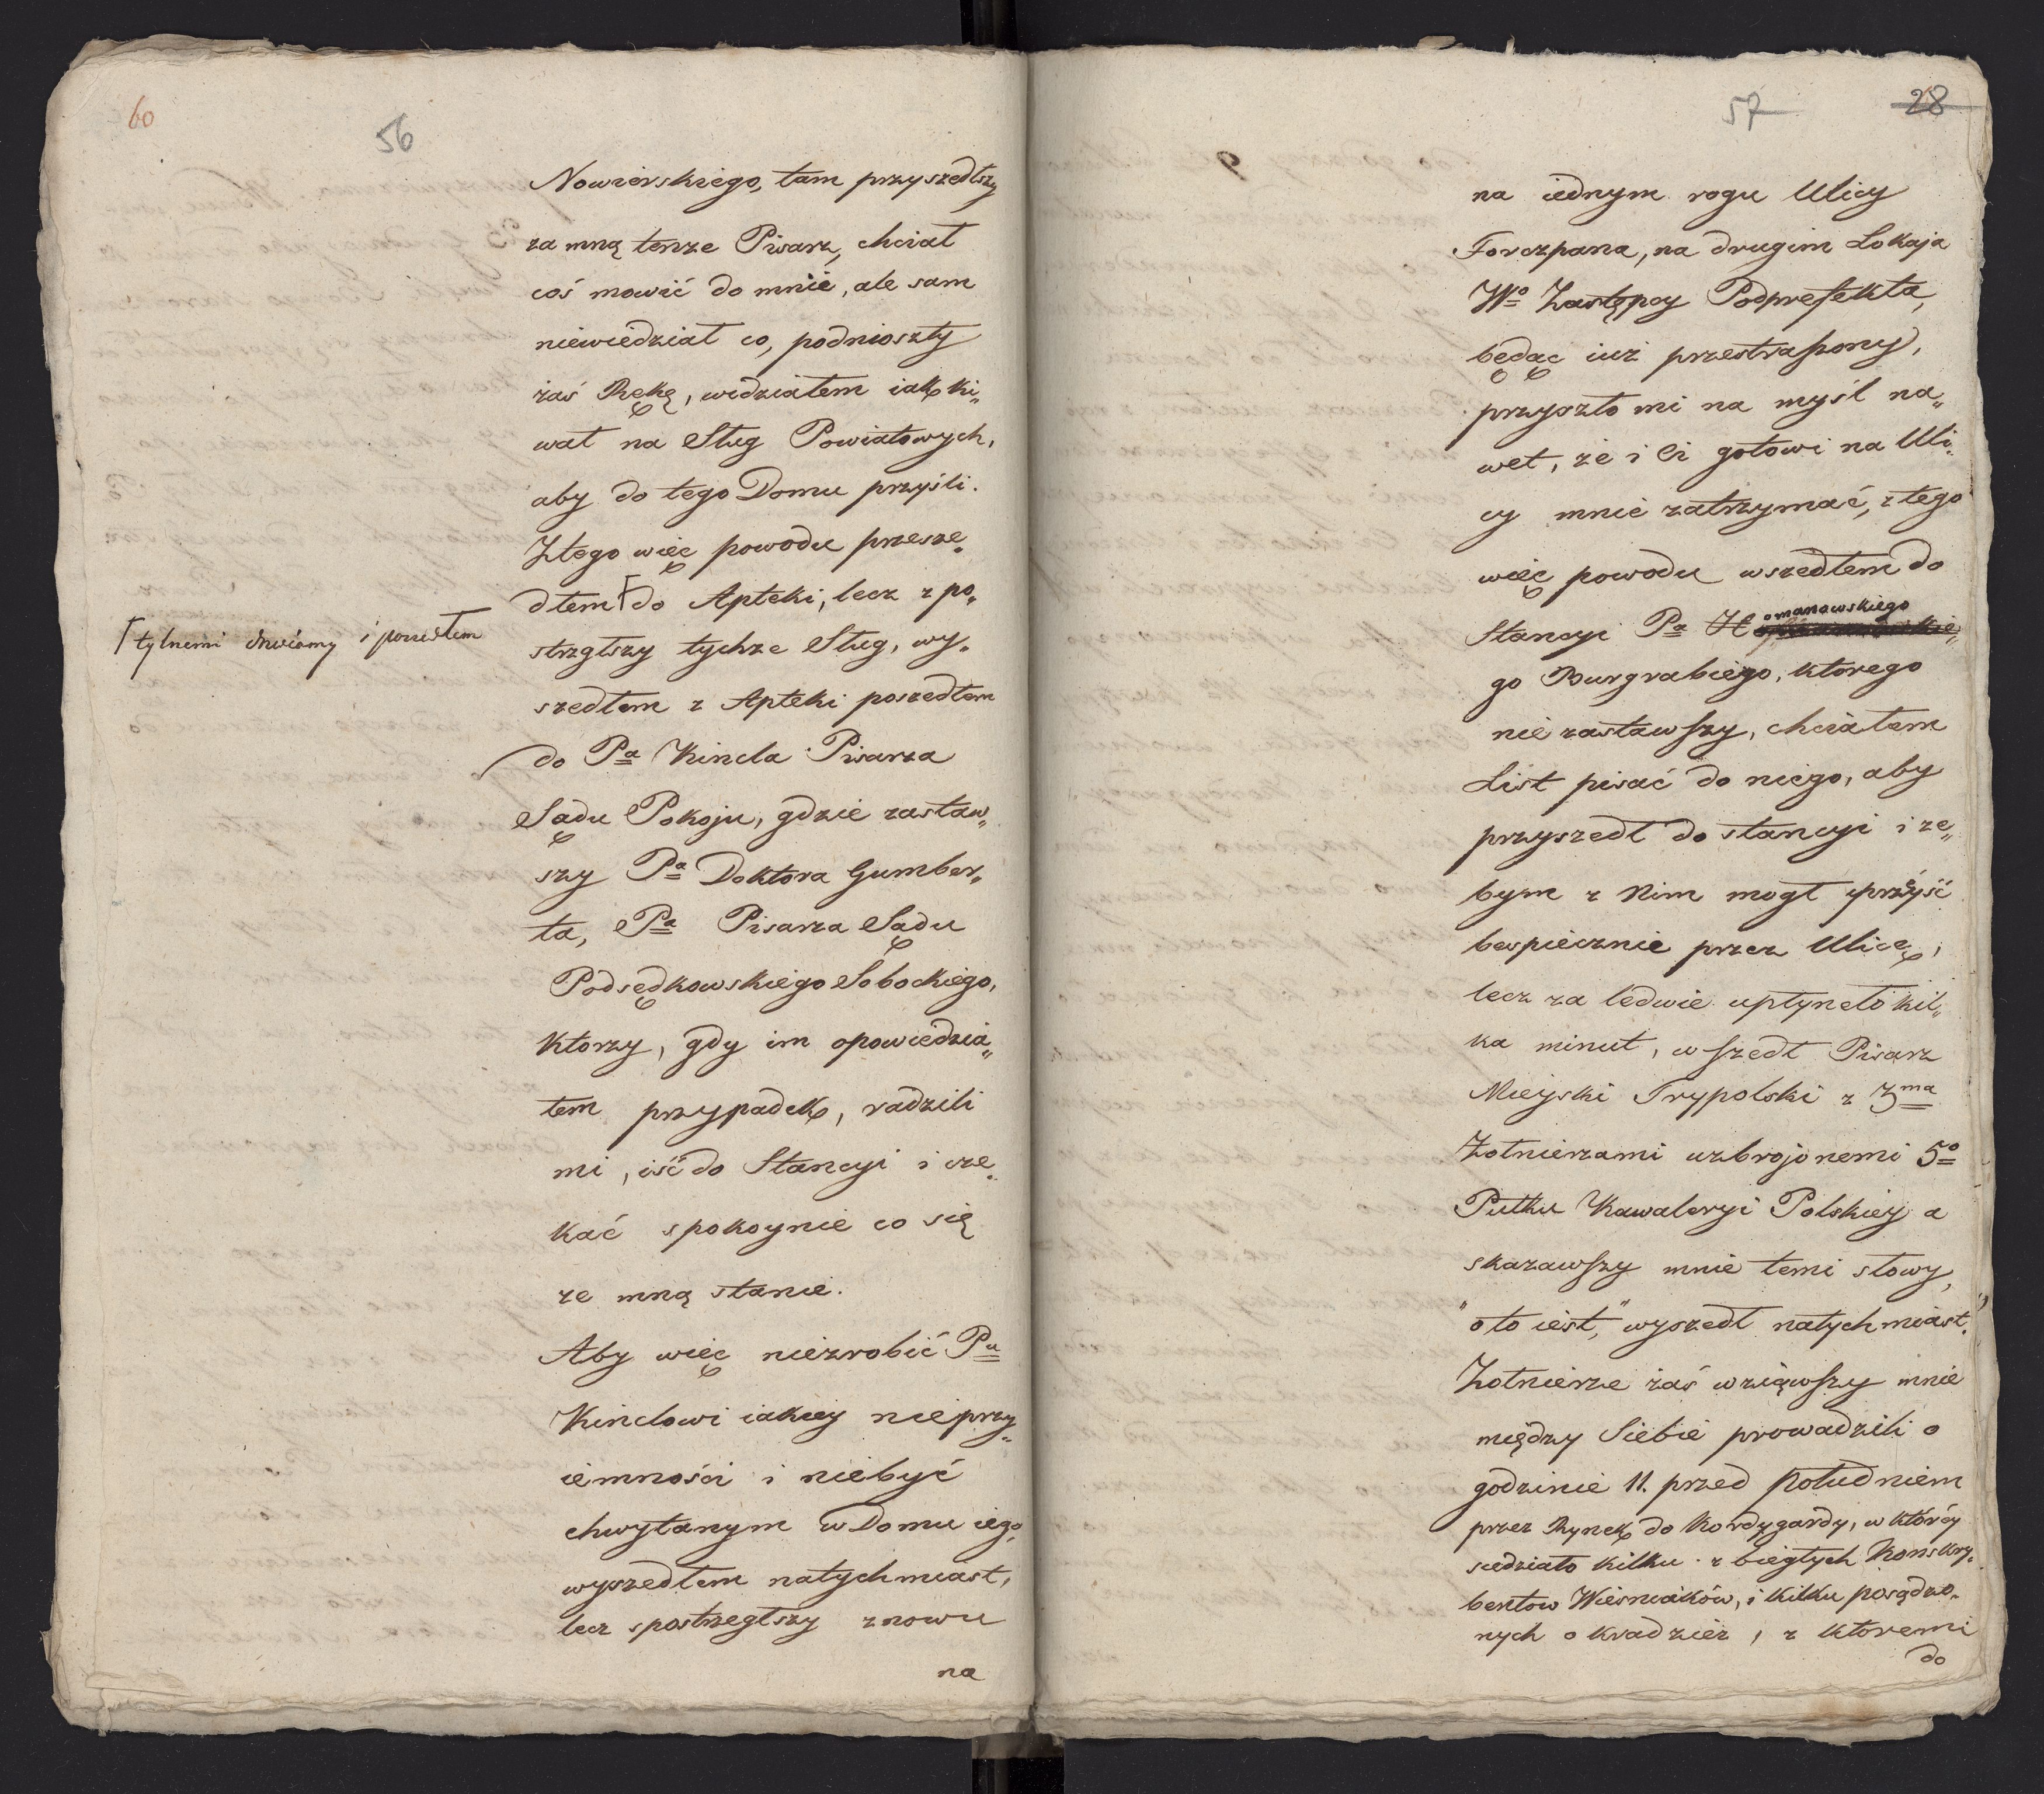 60
56
Nowierskiego, tam przyszedłszy
za mną tenże Pisarz, chciał
coś mowić do mnie, ale sam
niewiedział co, podnioszły
zaś Rękę, widziałem iak ki„
wał na Sług Powiatowych,
aby do tego Domu przyśli.
Ztego więc powodu przesze„
dłem ⌈ do Apteki, lecz z po„
⌈ tylnemi drwiamy i poszedłem
strzgłszy tychże Sług, wy„
szedłem z Apteki poszedłem
do Pa Kincla Pisarza
Sądu Pokoju, gdzie zastaw„
szy Pa Doktora Gumber„
ta, Pa Pisarza Sądu
Podsędkowskiego Sobockiego,
Ktorzy, gdy im opowiedzia„
łem przypadek, radzili
mi, iść do Stancyi i cze„
kać spokoynie co się
ze mną stanie.
Aby więc niezrobić Pu
Kinclowi iakiey nieprzy„
iemności i niebyć
chwytanym w Domu iego,
wyszedłem natychmiast,
lecz spostrzegłszy znowu
na
57
28
na iednym rogu Ulicy
Forczpana, na drugim Lokaja
Wo Zastępcy Podprefekta,
będąc iuż przestraszony,
przyszło mi na myśl na„
wet, że i Ci gotowi na Uli„
cy mnie zatrzymać, z tego
więc powodu wszedłem do
Stancyi Pa Homanowskiego
go Burgrabiego, ktorego
nie zastawszy, chciałem
List pisać do niego, aby
przyszedł do stancyi i że„
bym z Nim mogł przeyść
bespiecznie przez Ulicę,
lecz za ledwie upłyneło kil„
ka minut, wszedł Pisarz
Mieyski Trypolski z 3ma
Żołnierzami uzbrojonemi 5o
Pułku Kawaleryi Polskiey a
skazawszy mnie temi słowy,
"oto iest," wyszedł natychmiast.
Żołnierze zaś wziąwszy mnie
między Siebie prowadzili o
godzinie 11. przed południem
przez Rynek do Kordygardy, w którey
siedziało kilku zbiegłych Konskry„
bentow Wieśniaków, i kilku posądzo„
nych o kradzież, z ktoremi
do